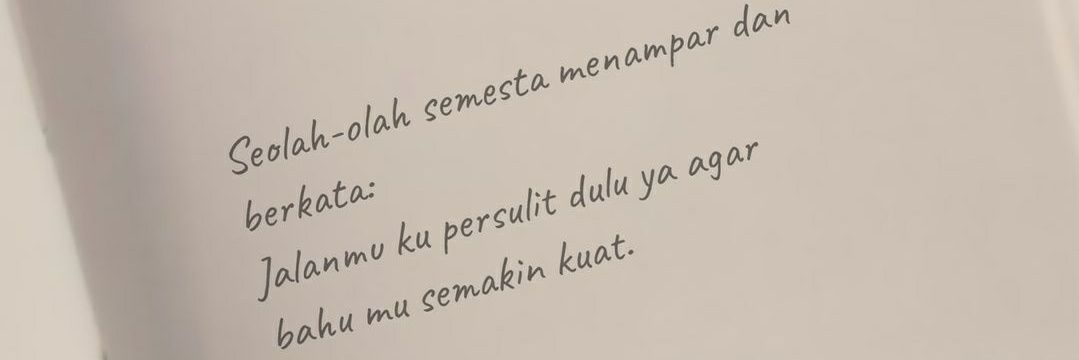 Seolah-olah semesta menampar dan
berkata:
Jalanmu ku persulit dulu ya agar
bahu mu semakin kuat.